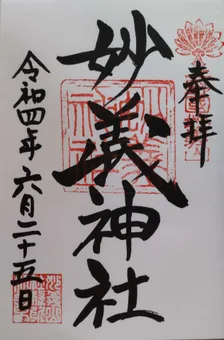 奉拝
妙義神社
令和四年六月二十五日